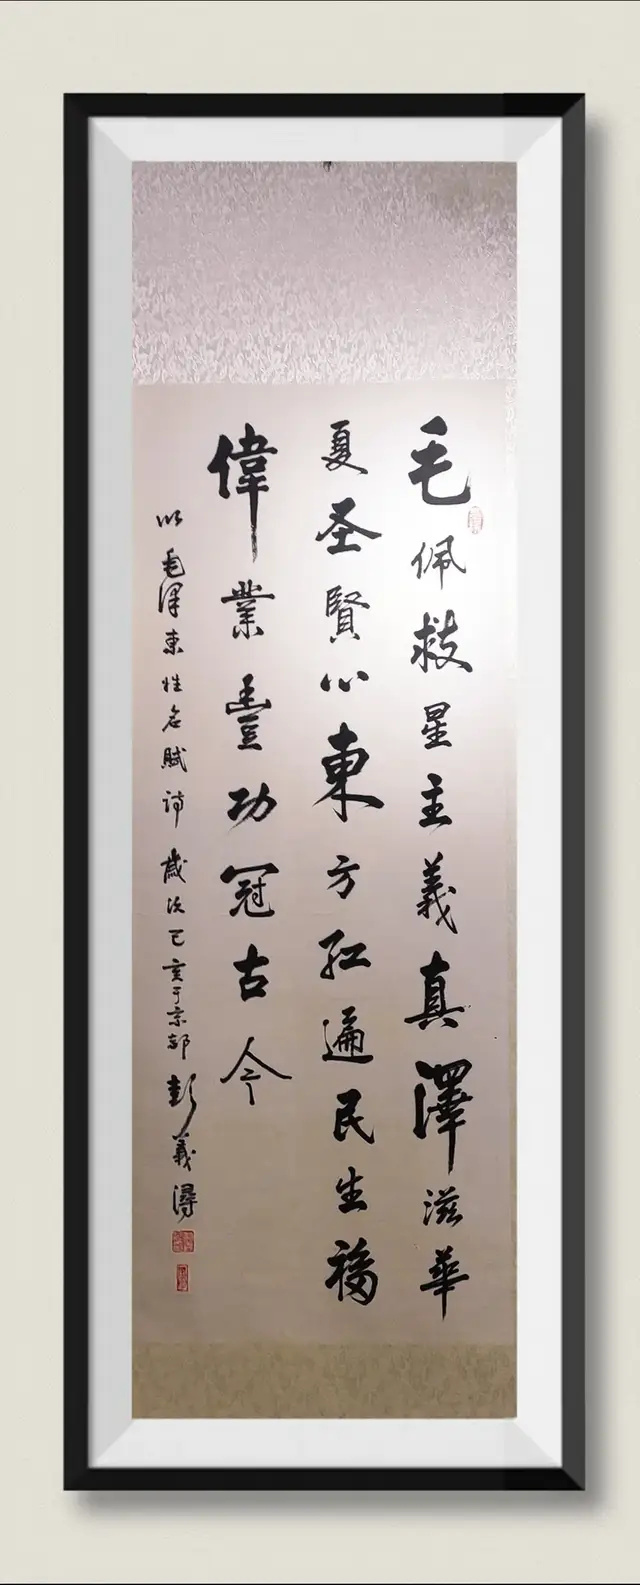 毛佩救星主義真澤滋華
夏圣賢心東方紅遍民生福
偉業豊功冠古今
以毛澤東性名賦詩歲次已亥于京都彭義潯